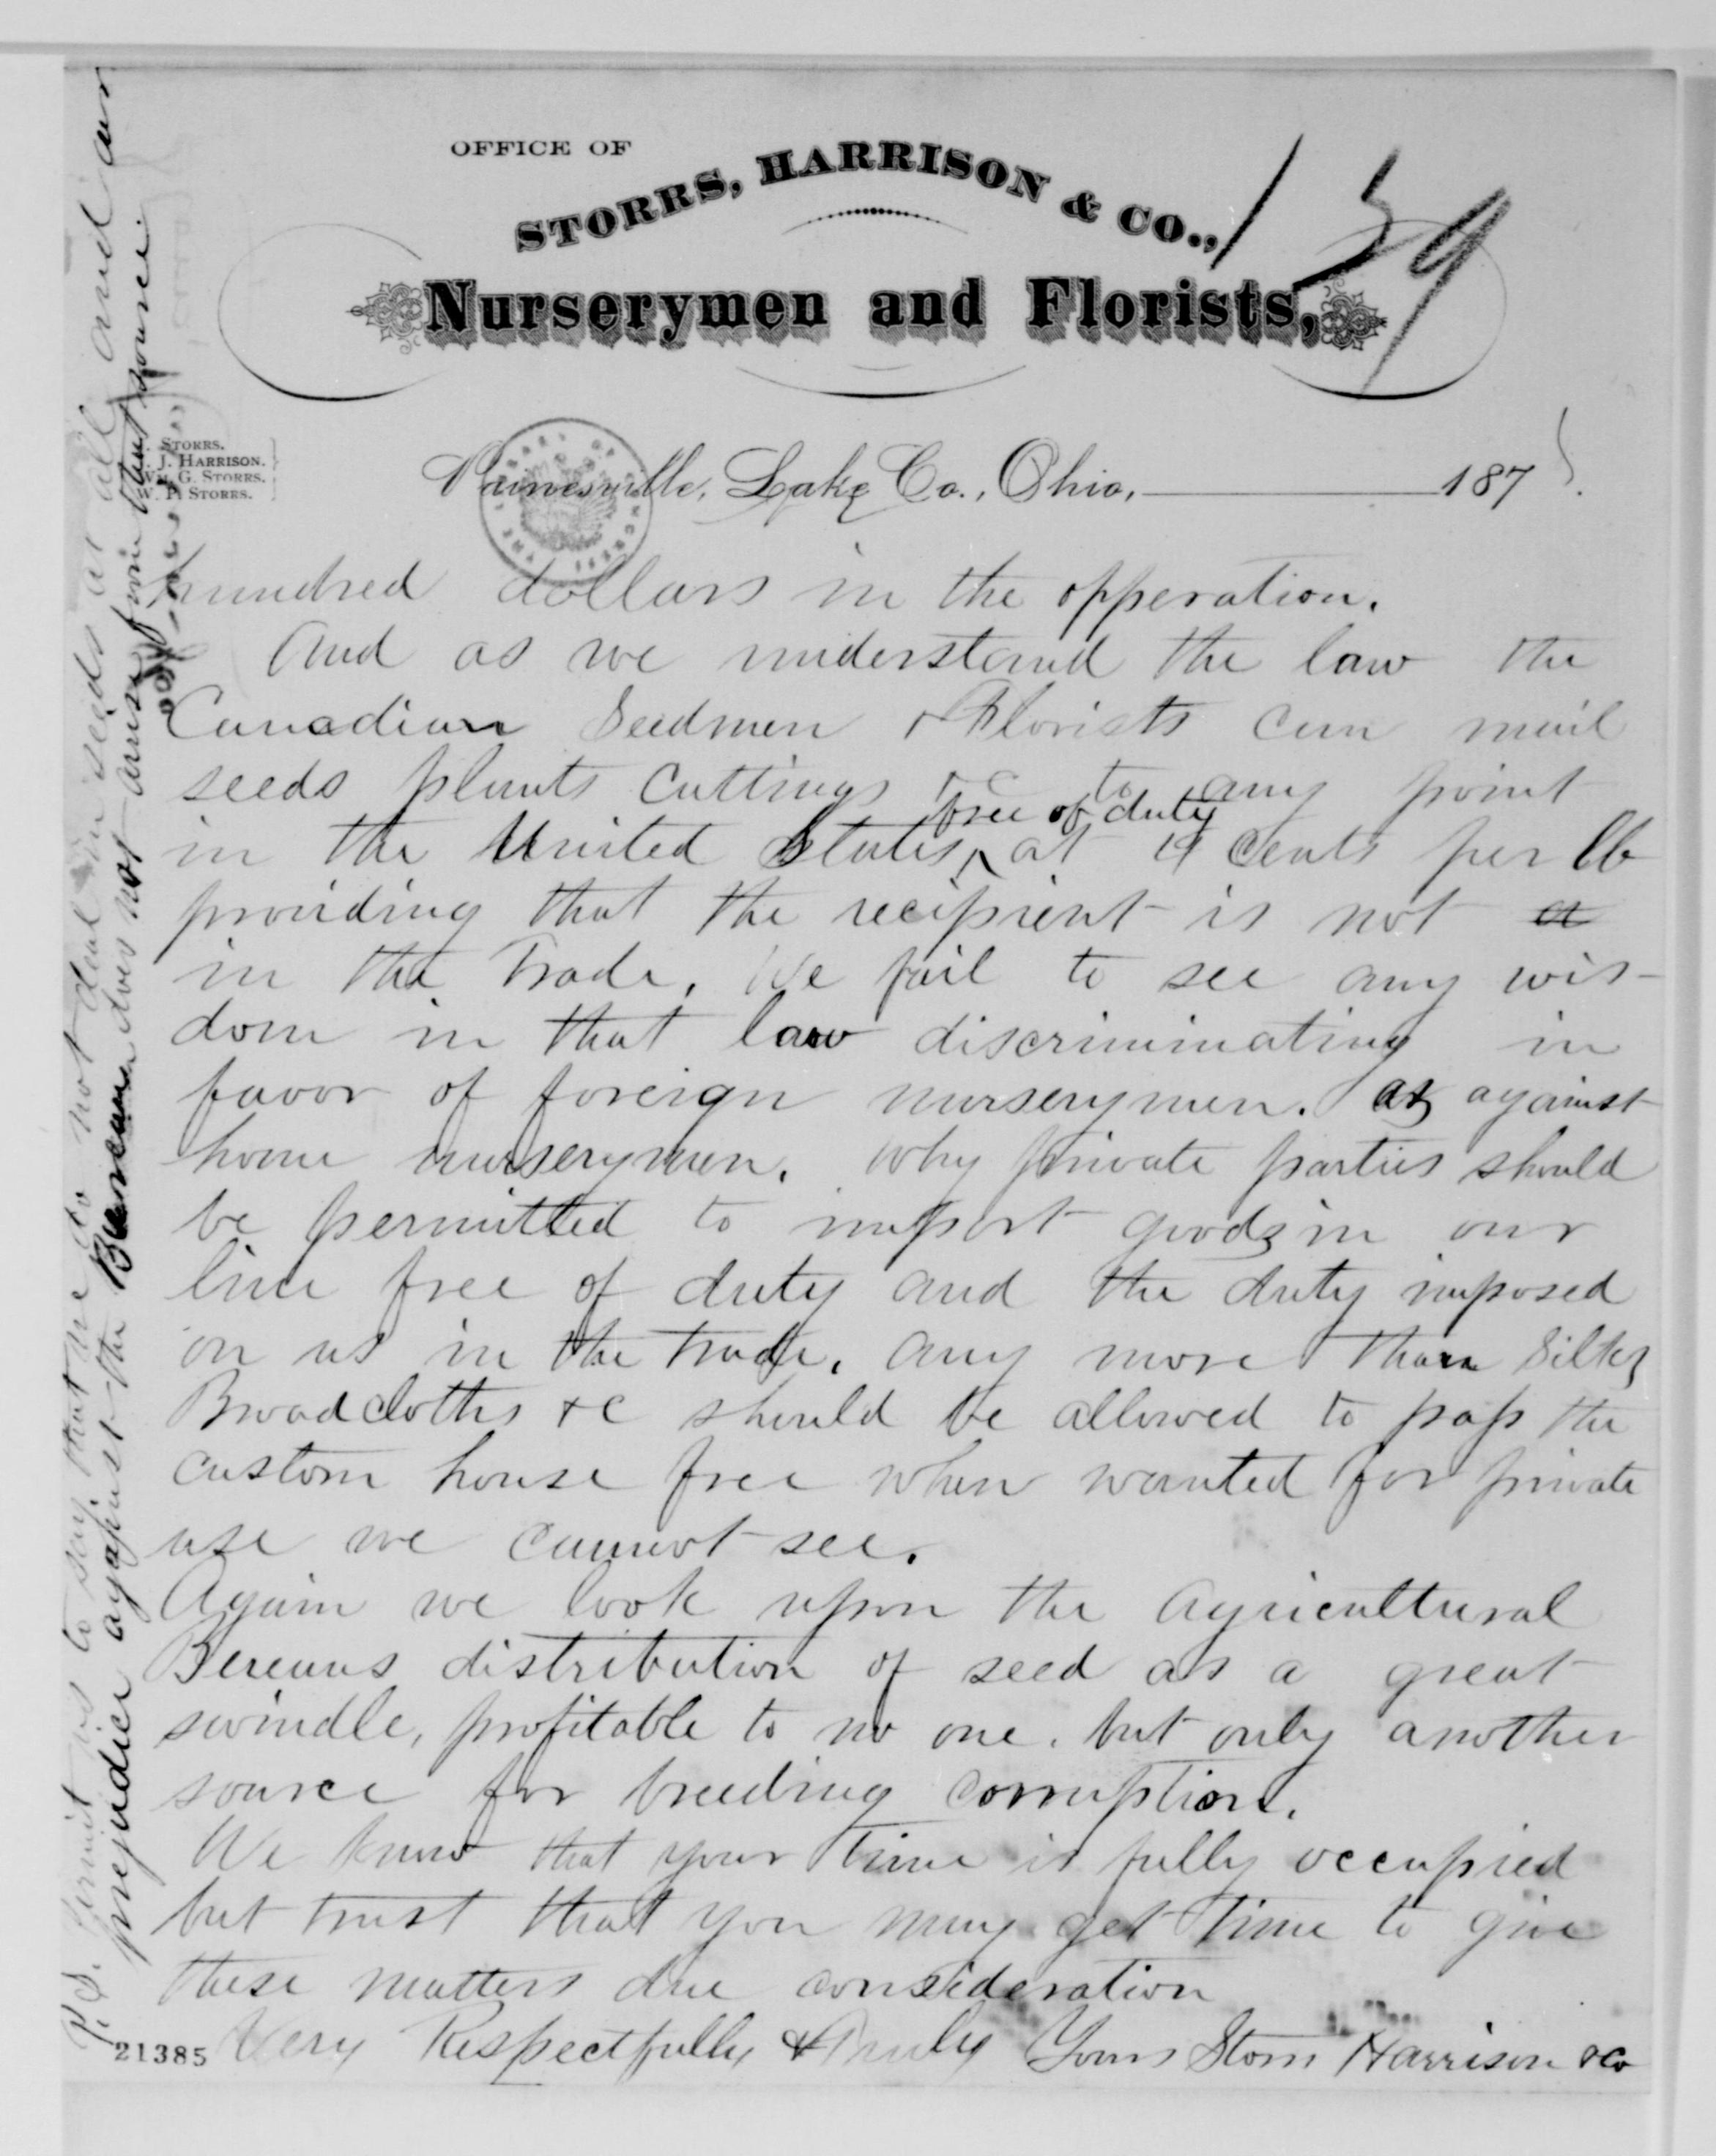 OFFICE OF
STORRS, HARRISON & CO.,
159
Nurserymen and Florists,
STORRS.
J. HARRISON.
WM. G. STORRS.
W. P. STORRS.
Painesville, Lake Co., Ohio, 187
hundred dollars in the opperation.
And as we understand the law the
Canadian Seedmen & Florists can mail
seeds plants cuttings &c to any point
free of duty
in the United States, ^ at 4 cents per lb
providing that the recipient is not a
in the Trade. We fail to see any wis-
dom in that law discriminating in
favor of foreign nurserymen. as against
home nurserymen. Why private parties should
be permitted to import goods in our
line free of duty and the duty imposed
on us in the trade, any more than Silks
Broadcloths &c should be allowed to pass the
custom house free when wanted for private
use we cannot see.
Again we look upon the Agricultural
Bereaus distribution of seed as a great
swindle, profitable to no one. but only another
source for breeding corruption.
We know that your time is fully occupied
but trust that you may get time to give
these matters due consideration
Very Respectfully & Truly Yours Storrs Harrison & Co
21385
P.S. Permit us to say that we do not deal in seeds at all and our
prejudice against the Bereau does not arise from that source.